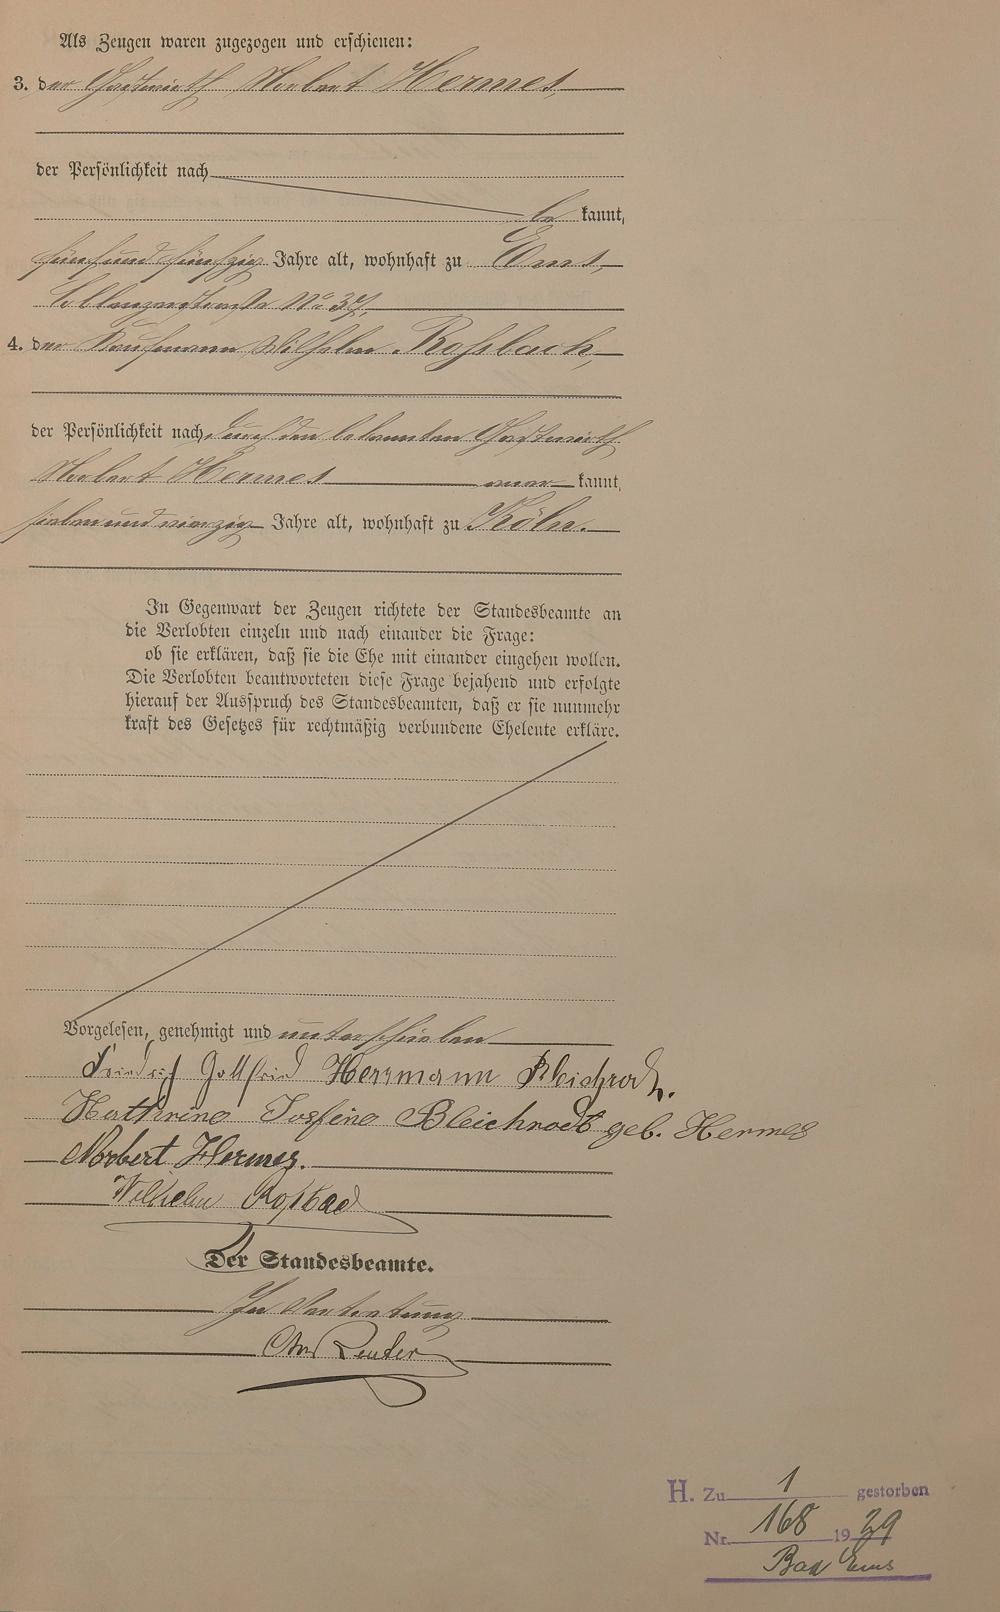 Als Zeugen waren zugezogen und erschienen:
3. der Gastwirth Norbert Hermes,
der Persönlichkeit nach
be kannt,
fünfundfünfzig Jahre alt, wohnhaft zu Ems
Coblenzerstraße No 37,
4. der Kaufmann Wilhelm Roßbach,
der Persönlichkeit nach durch den bekannten Gastwirth
Norbert Hermes aner kannt,
siebenundvierzig Jahre alt, wohnhaft zu Köln.
In Gegenwart der Zeugen richtete der Standesbeamte an
die Verlobten einzeln und nach einander die Frage:
ob sie erklären, daß sie die Ehe mit einander eingehen wollen.
Die Verlobten beantworteten diese Frage bejahend und erfolgte
hierauf der Ausspruch des Standesbeamten, daß er sie nunmehr
kraft des Gesetzes für rechtmäßig verbundene Eheleute erkläre.
Vorgelesen, genehmigt und unterschrieben
Friedrich Gottfried Herrmann Bleichrodt.
Kathrine Josfine Bleichrodt geb. Hermes
Norbert Hermes.
Wilhelm Roßbach
Der Standesbeamte.
In Vertretung
Reuter
H. Zu 1 gestorben
Nr. 168 1929
Bad Ems